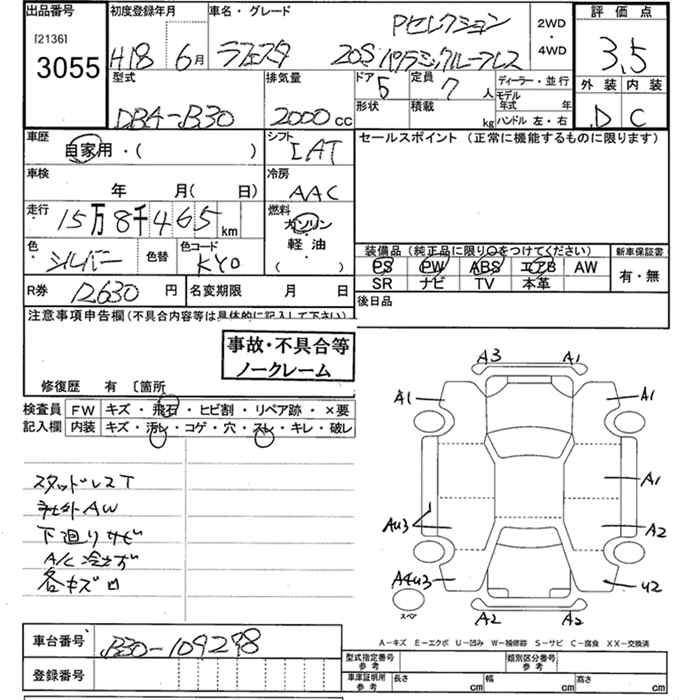 出品番号 初度登録年月 車名・グレード 評価点
[2136] Pセレクション 2WD
3055 H18 6月 ラフェスタ 20S パノラミックルーフレス ・ 3.5
4WD
型式 排気量 ドア 定員 ディーラー・並行 外装 内装
5 7人 モデル年式 年
DBA-B30 2000cc 形状 積載 kg ハンドル 左・右 D C
車歴 シフト セールスポイント (正常に機能するものに限ります)
自家用・( ) IAT
車検 冷房
年 月(日) AAC
走行 燃料
15万8千465km ガソリン
色 色替 色コード 軽油
シルバー KY0 ( )
装備品(純正品に限り○をつけてください) 新車保証書
PS PW ABS エアB AW 有・無
SR ナビ TV 本革
R券 12630円 名変期限 月 日 後日品
注意事項申告欄(不具合内容等は具体的に記入して下さい)
事故・不具合等
ノークレーム
修復歴 有 〔箇所
検査員 FW キズ・飛石・ヒビ割・リペア跡・×要
記入欄 内装 キズ・汚レ・コゲ・穴・スレ・キレ・破レ
スタッドレスT
社外AW
下廻りサビ
A/C冷えず
各キズ凹
A3 A1
A1 A1
A1
AU3 A2
A4U3 U2
スペア A2 A2
A-キズ E-エクボ U-凹み W-補修跡 S-サビ C-腐食 XX-交換済
車台番号 B30-109298
登録番号
型式指定番号 参考 類別区分番号 参考
車庫証明用 参考 長さ cm 幅 cm 高さ cm